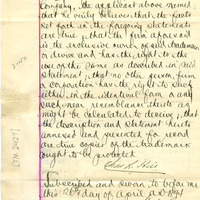 Company, the applicant above named
that he verily believes that the facts
set forth in the foregoing statement
are true, that the firm aforesaid
is the exclusive owner of said trademark
or device and has the right to the
use of the same as described in said
statement, that no other person, firm
or corporation has the right to such
either in the identical form or any
such near resemblance thereto as
might be calculated to deceive; that
the description and statement hereto
annexed and presented for record
are true copies of the trademark
sought to be protected
Chas. A.
Subscribed and sworn to before me
this day of April A.D. 1891